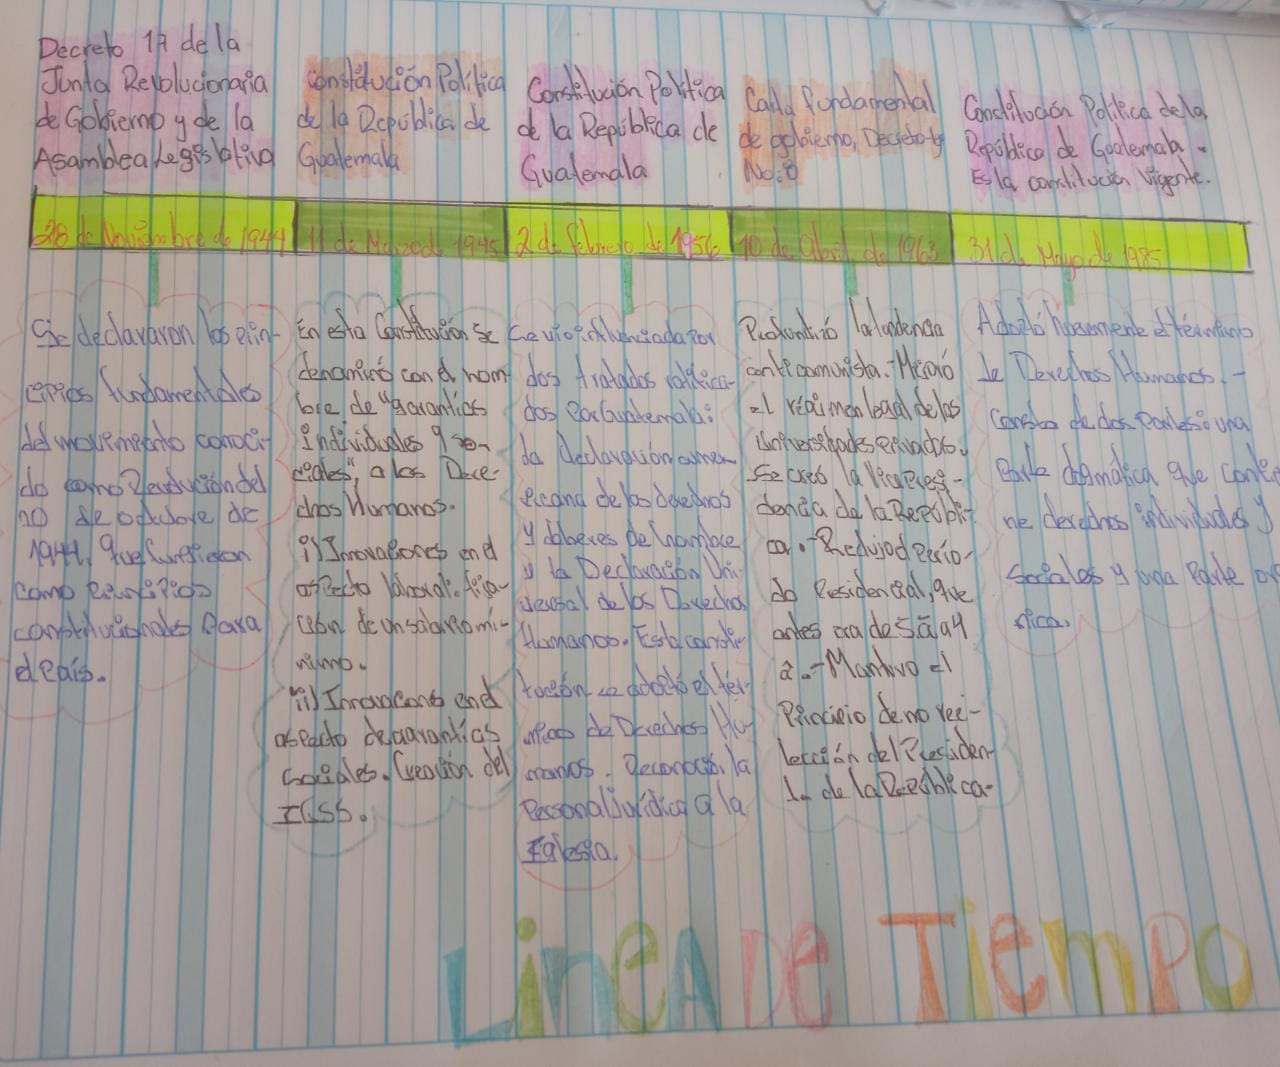 Decreto 17 de la
Junta Revolucionaria
de Gobierno y de la
Asamblea Legislativa
Constitución Política
de la República de
Guatemala
Constitución Política
de la República de
Guatemala
Carta fundamental
de gobierno, Decreto ley
No. 8
Constitución Política de la
República de Guatemala -
Es la constitución vigente.
28 de Noviembre de 1944
11 de Marzo de 1945
2 de febrero de 1956
10 de Abril de 1963
31 de Mayo de 1985
Se declararon los prin-
cipios fundamentales
del movimiento conoci-
do como Revolución del
20 de octubre de
1944, que surgieron
como Principios
constitucionales Para
el País.
En esta Constitución se
denominó con el nom-
bre de "garantías
individuales y so-
ciales", a los Dere-
chos Humanos.
i) Innovaciones en el
aspecto laboral: fija-
ción de un salario mí-
nimo.
ii) Innovaciones en el
aspecto de garantías
sociales. Creación del
IGSS.
Se vio influenciada por
dos tratados ratifica-
dos por Guatemala:
la Declaración ameri-
cana de los derechos
y deberes del hombre
y la Declaración Uni-
versal de los Derechos
Humanos. Esta consti-
tución se adoptó el tér-
mino de Derechos Hu-
manos. Reconoció la
Personal jurídica a la
Iglesia.
Profundizó la tendencia
anticomunista.- Mejoró
el régimen legal de las
universidades privadas.
Se creó la Vicepresi-
dencia de la Repúbli-
ca.- Redujo el Perío-
do Presidencial, que
antes era de 5 a a 4
a.- Mantuvo el
Principio de no ree-
lección del Presiden-
te de la República-
Adoptó nuevamente el término
de Derechos Humanos.-
Consta de dos partes: una
Parte dogmática que contie
ne derechos individuales y
Sociales y una Parte orgá
nica.
Línea De Tiempo